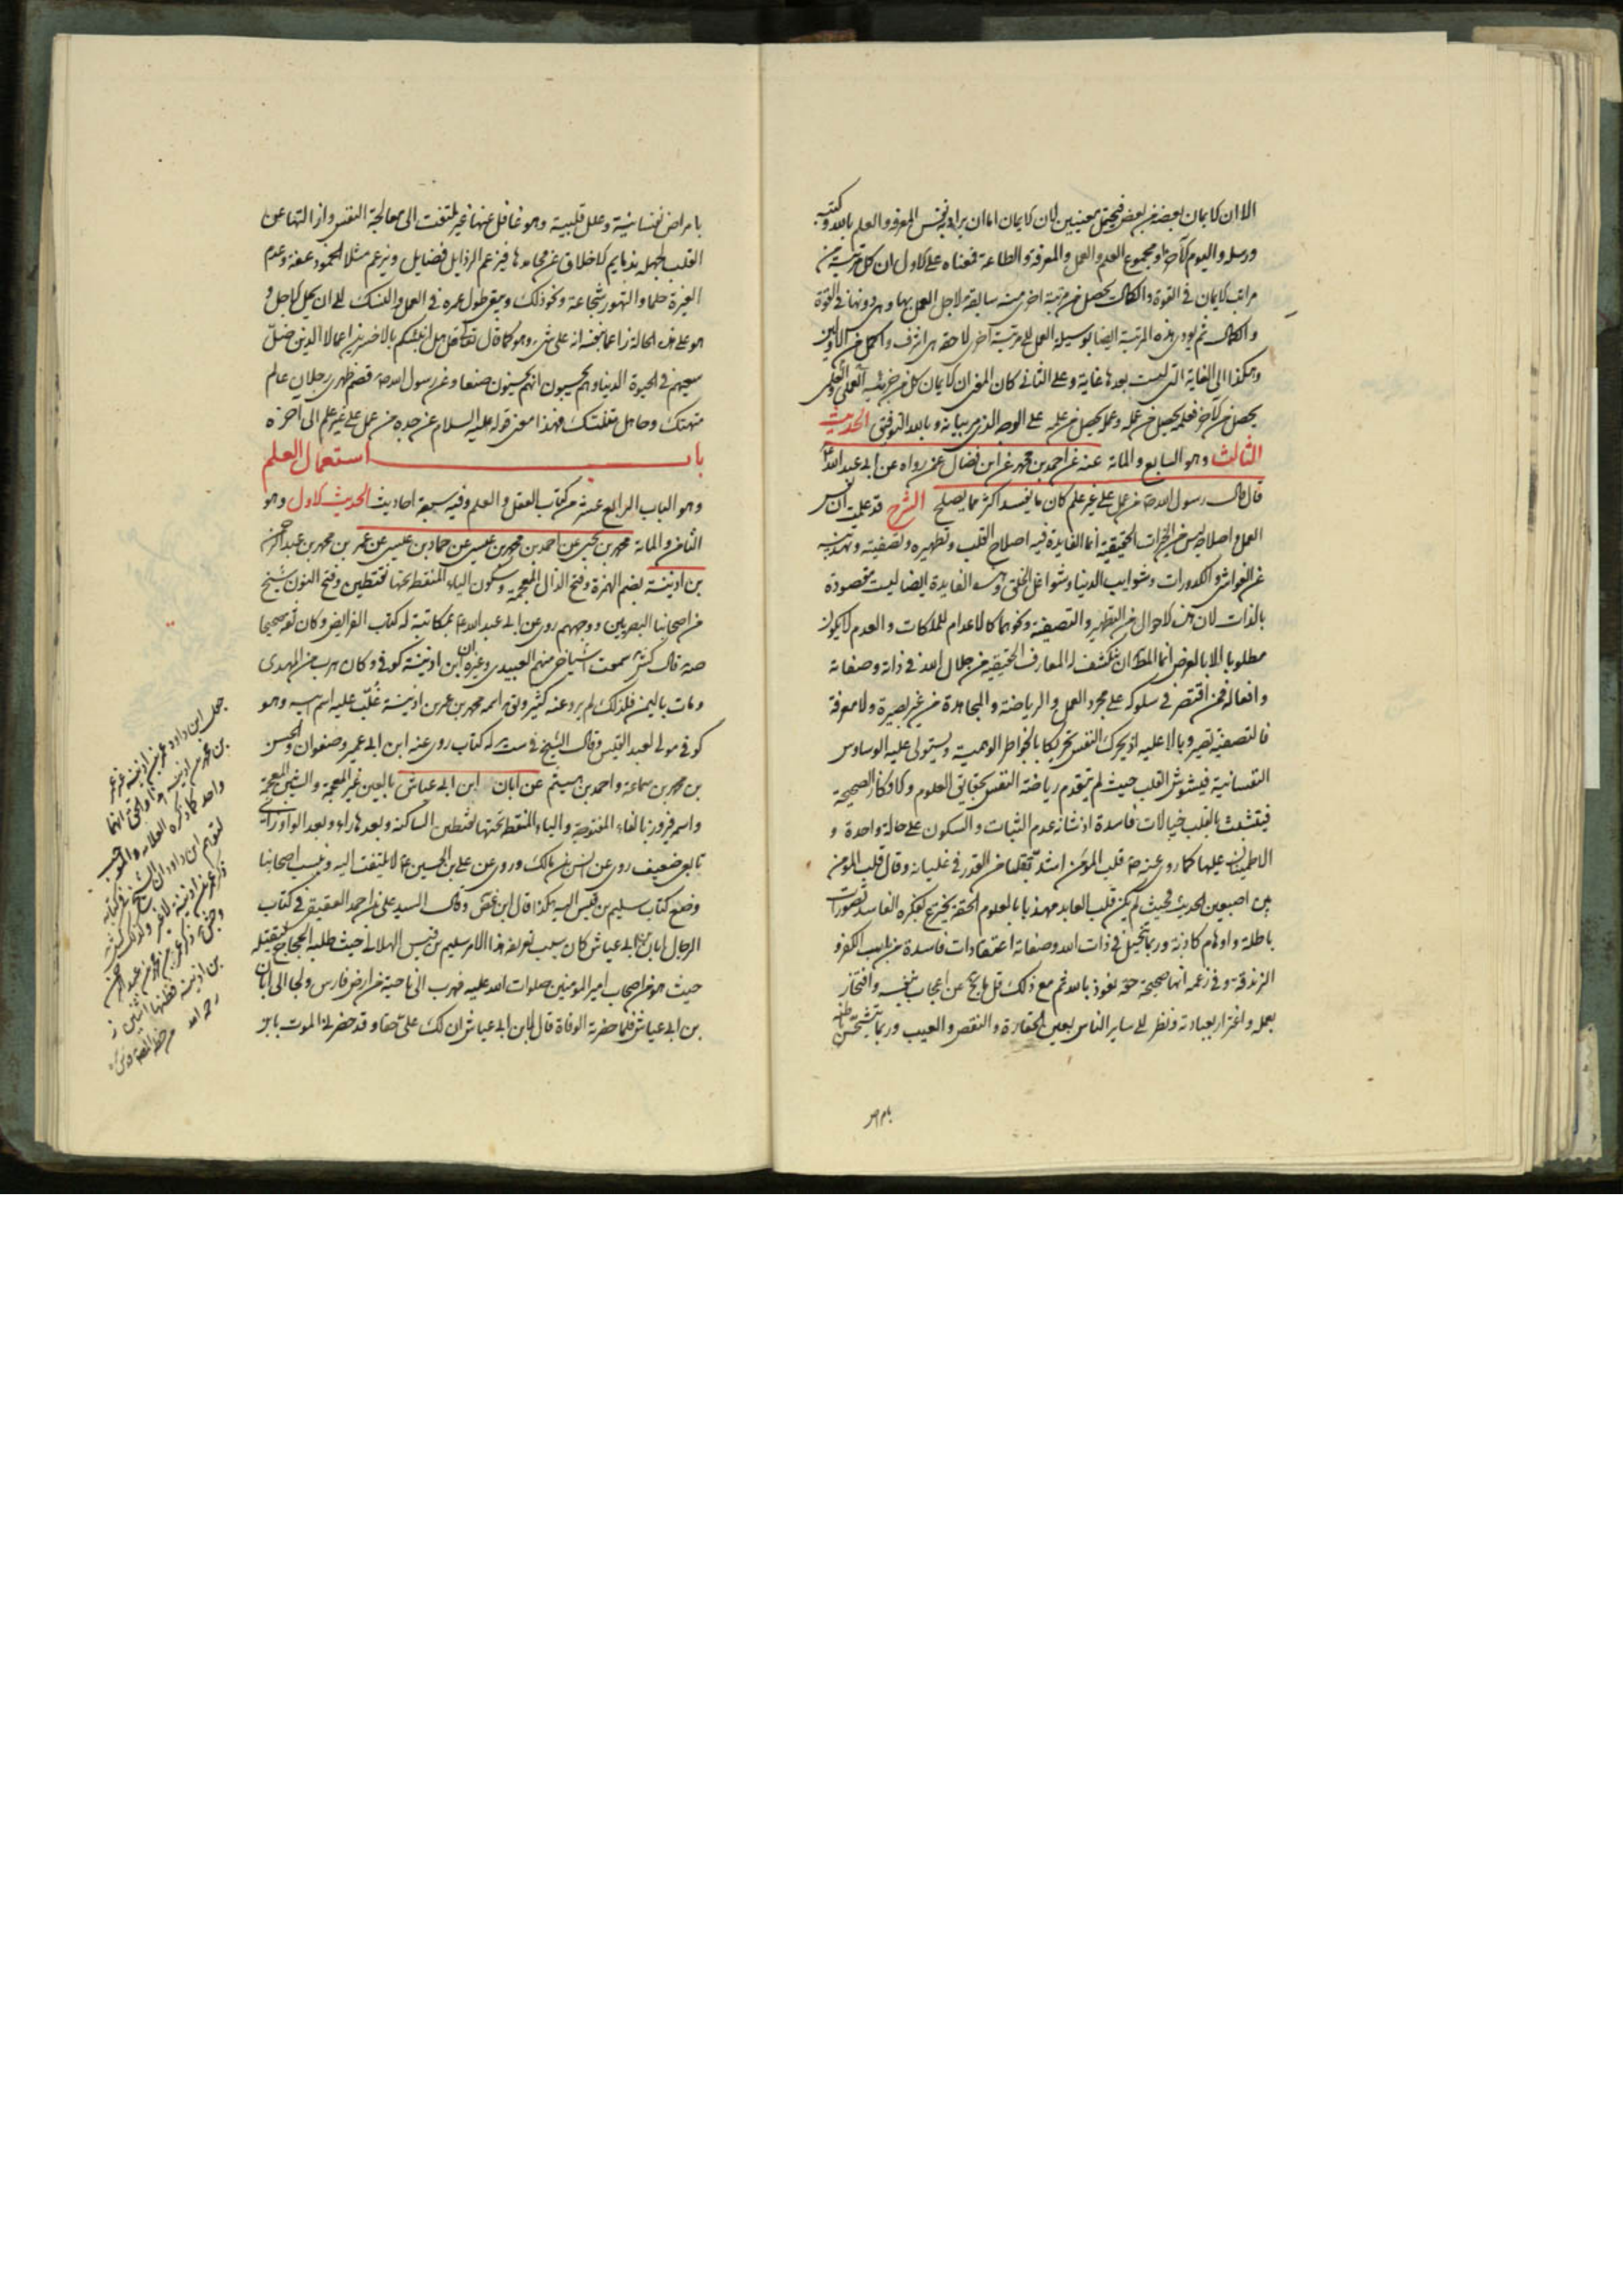 الا ان الايمان بعضه من بعض فيحتمل معنيين لان الايمان اما ان يراد به نفس المعرفة والعلم بالله وكتبه
ورسله واليوم الآخر او مجموع العلم والعمل والمعرفة والطاعة فمعناه على الاول ان كل مرتبة من
مراتب الايمان في القوة والكمال يحصل من مرتبة اخرى منه سابقة لاجل العمل بها وهى دونها في القوة
والكمال ثم يودى هذه المرتبة ايضا بوسيلة العمل الى مرتبة اخرى لاحقة هى اشرف واكمل من الاوليين
وهكذا الى الغاية التى ليست بعدها غاية وعلى الثانى كان المعنى ان الايمان كل من جزئيه العملى والعلمى
يحصل من الآخر فعلمه يحصل من عمله وعمله يحصل من علمه على الوجه الذى مر بيانه وبالله التوفيق الحديث
الثالث وهو السابع والمائة عنه عن احمد بن محمد عن ابن فضال عمن رواه عن ابى عبد الله ع
قال قال رسول الله ص من عمل على غير علم كان ما يفسد اكثر مما يصلح الشرح قد علمت ان ليس
العمل واصلاحه ليس من الخيرات الحقيقية انما الفايدة فيه اصلاح القلب وتطهيره وتصفيته وتهذيبه
عن الغواشى والكدورات وشوايب الدنيا وشواغل الخلق وهذه الفايدة ايضا ليست مقصودة
بالذات لان هذه الاحوال من التطهير والتصفية ونحوهما كالاعدام للملكات والعدم لا يكون
مطلوبا الا بالعرض انما المطلوب ان ينكشف له المعارف الحقيقية من جلال الله في ذاته وصفاته
وافعاله فمن اقتصر في سلوكه على مجرد العمل والرياضة والمجاهدة من غير بصيرة ولا معرفة
فالتصفية تصير وبالا عليه اذ يحرك النفس تحريكا بالخواطر الوهمية ويستولى عليه الوساوس
النفسانية فيشوش القلب حيث لم يتقدم رياضة النفس بحقايق العلوم والافكار الصحيحة
فيتشبث بالقلب خيالات فاسدة اذ شانه عدم الثبات والسكون على حالة واحدة و
الاطمينان عليها كما روى عنه ص قلب المؤمن اشد تقلبا من القدر في غليانه وقال قلب المؤمن
بين اصبعين الحديث فحيث لم يكن قلب العابد مهذبا بالعلوم الحقة يخترع بفكره الفاسد تصورات
باطلة واوهام كاذبة وربما يتخيل في ذات الله وصفاته اعتقادات فاسدة من باب الكفر و
الزندقة وفى زعمه انها صحيحة حقة نعوذ بالله ثم مع ذلك قل ما ينجح عن اعجاب بنفسه وافتخار
بعمله واغترار بعبادته ونظر الى ساير الناس بعين الحقارة والنقص والعيب وربما يتشحن باطنه
بامراض
بامراض نفسانية وعلل قلبية وهو غافل عنها غير ملتفت الى معالجة النفس وازالتها عن
القلب لجهله بذمايم الاخلاق عن محامدها فيزعم الرذايل فضايل ويزعم مثلا الخمود عفة وعدم
الغيرة حلما والتهور شجاعة ونحو ذلك ويبقى طول عمره في العمل والنسك الى ان يحل الاجل و
هو على هذه الحالة زاعما بنفسه انه على شىء وهو كما قال تعالى قل هل انبئكم بالاخسرين اعمالا الذين ضل
سعيهم في الحيوة الدنيا وهم يحسبون انهم يحسنون صنعا وعن رسول الله ص قصم ظهرى رجلان عالم
متهتك وجاهل متنسك فهذا معنى قوله عليه السلام عن جده من عمل على غير علم الى آخره
باب استعمال العلم
وهو الباب الرابع عشر من كتاب العقل والعلم وفيه سبعة احاديث الحديث الاول وهو
الثامن والمائة محمد بن يحيى عن احمد بن محمد بن عيسى عن حماد بن عيسى عن عمر بن محمد بن عبد الرحمن
بن اذينة بضم الهمزة وفتح الذال المعجمة وسكون الياء المنقطة تحتها نقطتين وفتح النون شيخ
من اصحابنا البصريين ووجههم روى عن ابى عبد الله ع بمكاتبة له كتاب الفرايض وكان ثقة صحيحا
صه قال كش سمعت اشياخى منهم العبيدى وغيره ان ابن اذينة كوفى وكان هرب من المهدى
ومات باليمن فلذلك لم يرو عنه كثير ويق اسمه محمد بن عمر بن اذينة غلب عليه اسم ابيه وهو
كوفى مولى لعبد القيس وقال الشيخ في ست له كتاب روى عنه ابن ابى عمير وصفوان والحسن
بن محمد بن سماعة واحمد بن ميثم عن ابان ابن ابى عياش بالعين غير المعجمة والشين المعجمة
واسمه فيروز بالفاء المفتوحة والياء المنقطة تحتها نقطتين الساكنة وبعدها راء وبعد الواو زاى
تابعى ضعيف روى عن انس بن مالك وروى عن على بن الحسين ع لا يلتفت اليه وينسب اصحابنا
وضع كتاب سليم بن قيس اليه هكذا قال ابن غض وقال السيد على بن احمد العقيقى في كتاب
الرجال ابان بن ابى عياش كان سبب تعريفه هذا الامر سليم بن قيس الهلالى حيث طلبه الحجاج ليقتله
حيث هو من اصحاب امير المؤمنين صلوات الله عليه فهرب الى ناحية من ارض فارس ولجا الى ابان
بن ابى عياش فلما حضرته الوفاة قال لابن ابى عياش ان لك على حقا وقد حضرنى الموت يا بن
جعل ابن داود عمر بن اذينة غير عمر
بن محمد بن اذينة هذا والحق انهما
واحد كما ذكره العلامة